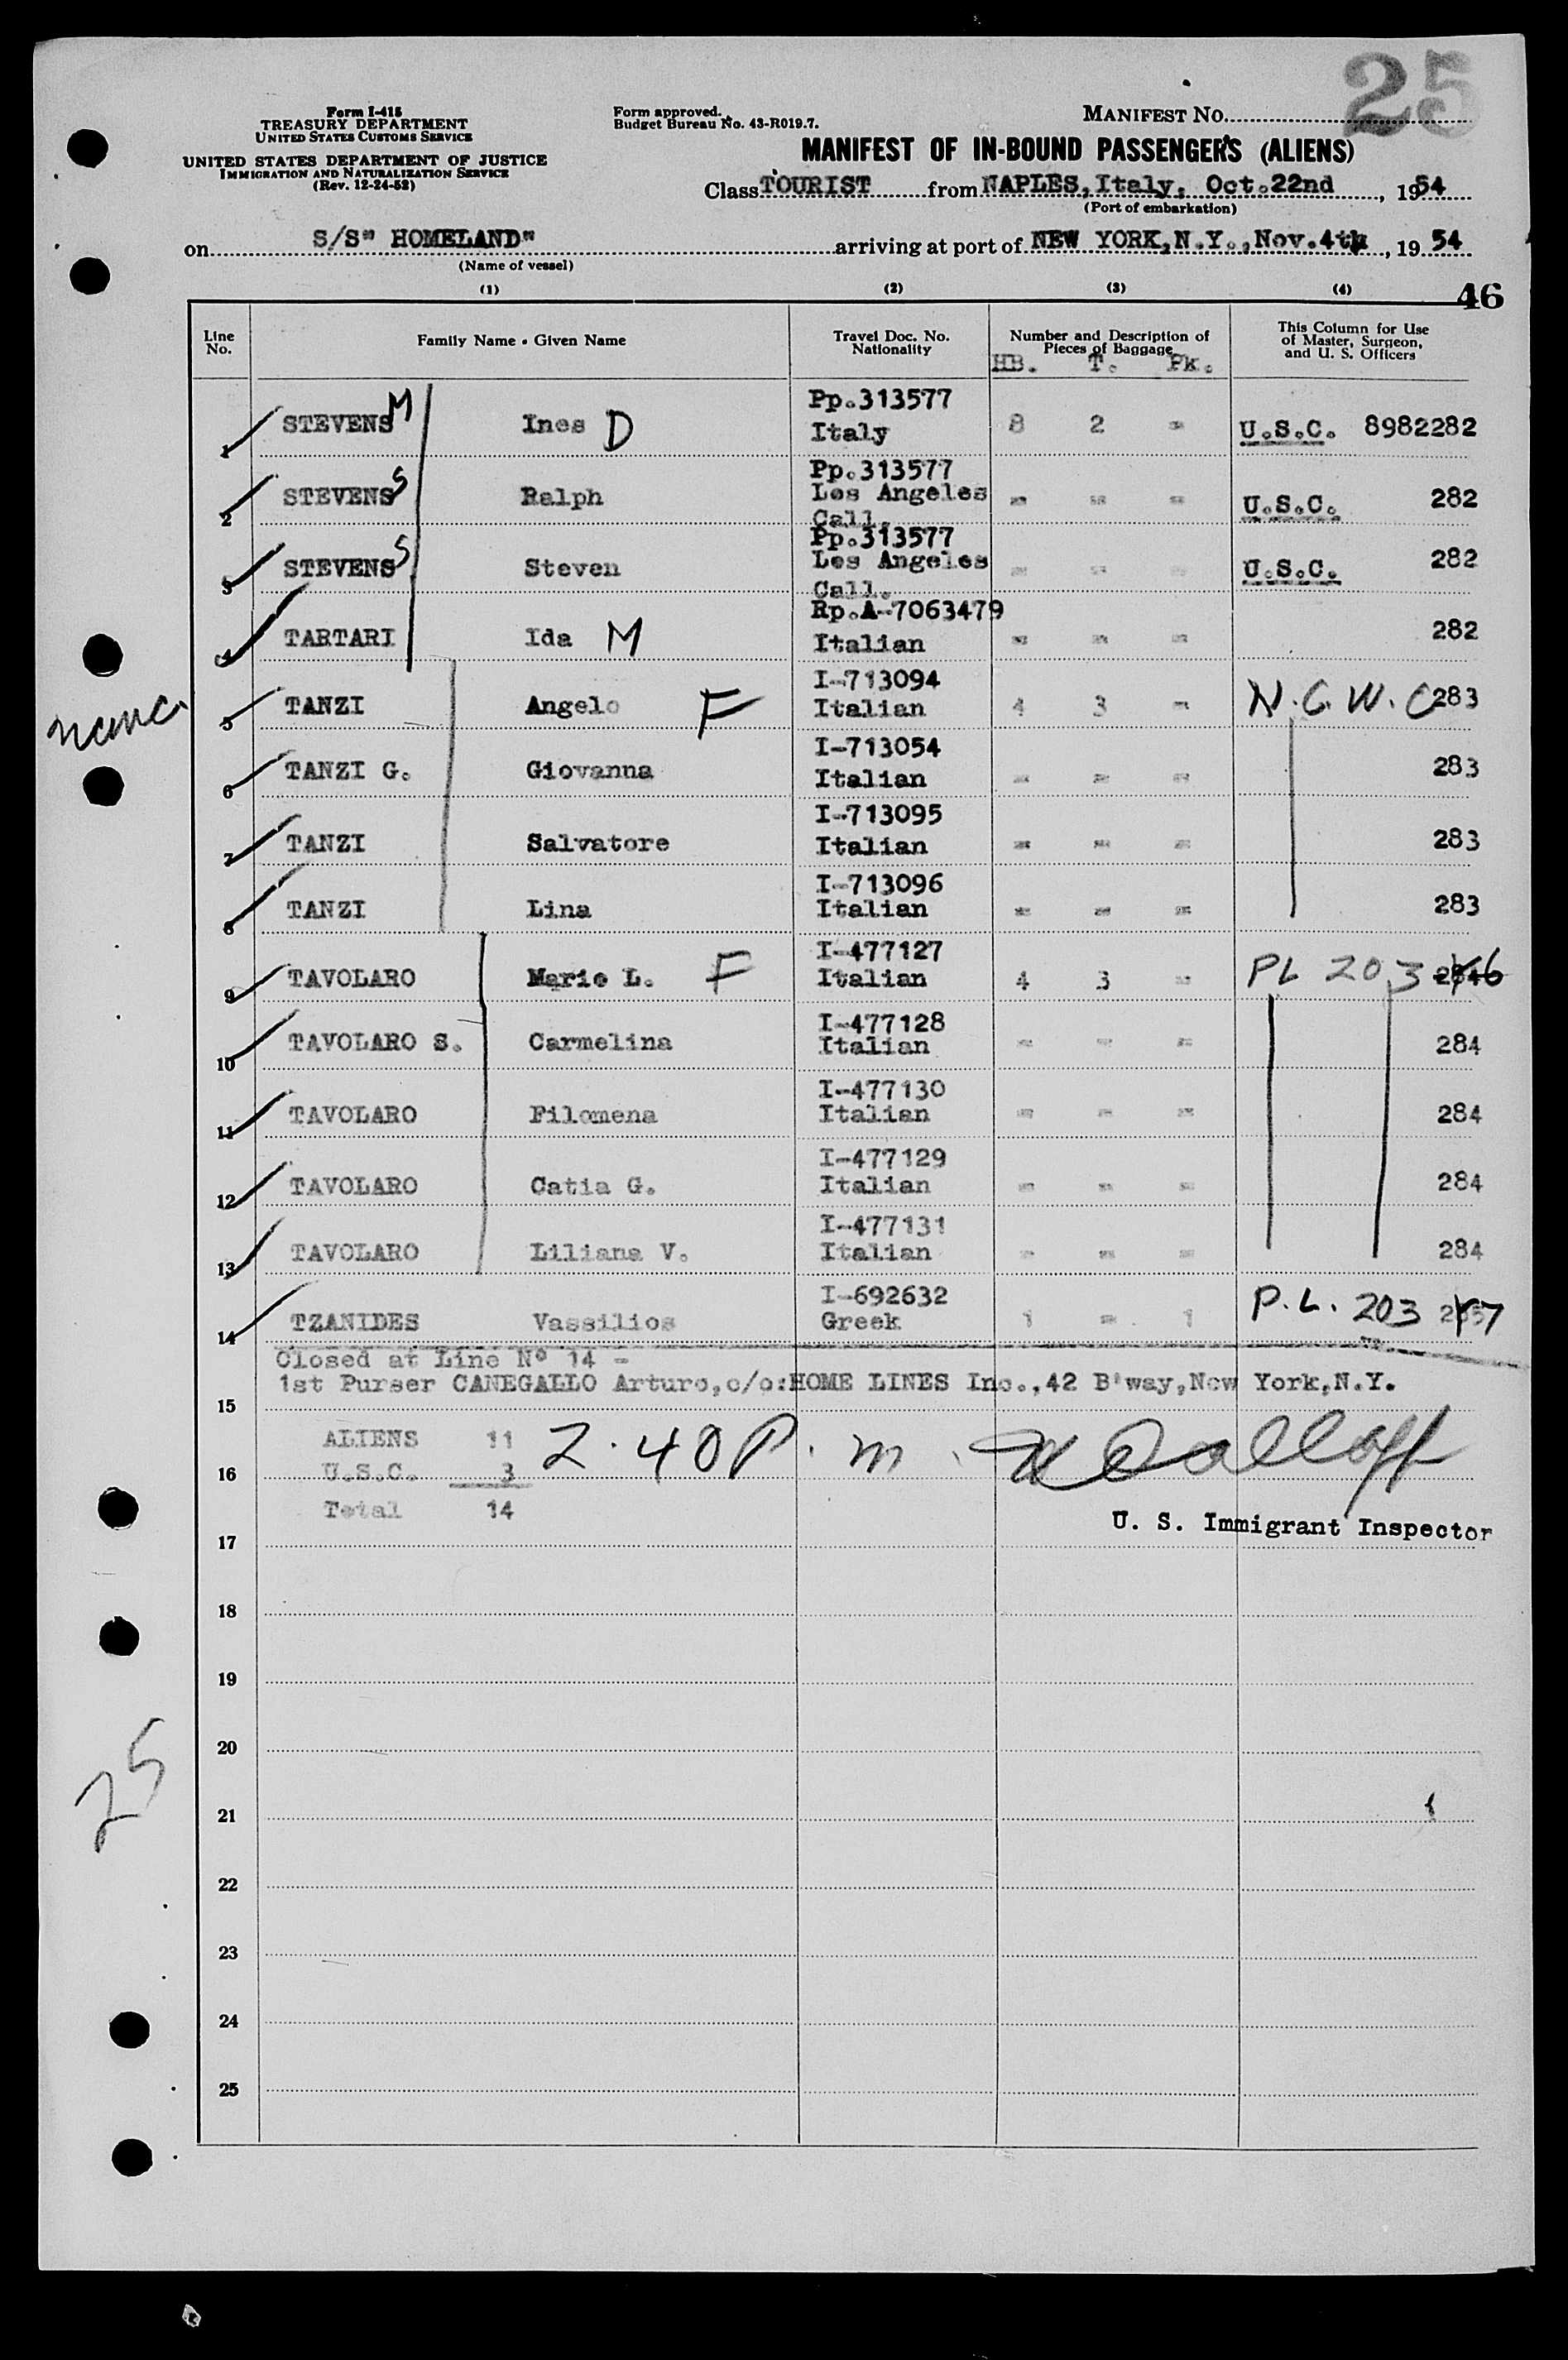 25
Form I-415
TREASURY DEPARTMENT
UNITED STATES CUSTOMS SERVICE
UNITED STATES DEPARTMENT OF JUSTICE
IMMIGRATION AND NATURALIZATION SERVICE
(Rev. 12-24-52)
Form approved.
Budget Bureau No. 43-R019.7.
MANIFEST NO.
MANIFEST OF IN-BOUND PASSENGERS (ALIENS)
Class TOURIST from NAPLES, Italy, Oct. 22nd, 1954
(Port of embarkation)
on S/S" HOMELAND" arriving at port of NEW YORK, N.Y., Nov. 4th, 19 54
(Name of vessel)
(1) (2) (3) (4) 46
Line No. Family Name • Given Name Travel Doc. No. Nationality Number and Description of Pieces of Baggage This Column for Use of Master, Surgeon, and U. S. Officers
HB. T. Pk.
1 STEVENS M Ines D Pp.313577 Italy 8 2 - U.S.C. 8982282
2 STEVENS S Ralph Pp.313577 Los Angeles Call. - - - U.S.C. 282
3 STEVENS S Steven Pp.313577 Los Angeles Call. - - - U.S.C. 282
4 TARTARI Ida M Rp.A-7063479 Italian - - - 282
5 TANZI Angelo F I-713094 Italian 4 3 - N.C.W.C 283
6 TANZI G. Giovanna I-713054 Italian - - - 283
7 TANZI Salvatore I-713095 Italian - - - 283
8 TANZI Lina I-713096 Italian - - - 283
9 TAVOLARO Mario L. F I-477127 Italian 4 3 - PL 203
10 TAVOLARO S. Carmelina I-477128 Italian - - - 284
11 TAVOLARO Filomena I-477130 Italian - - - 284
12 TAVOLARO Catia G. I-477129 Italian - - - 284
13 TAVOLARO Liliana V. I-477131 Italian - - - 284
14 TZANIDES Vassilios I-692632 Greek 1 - 1 P.L. 203
Closed at Line Nº 14 -
1st Purser CANEGALLO Arturo, c/o: HOME LINES Inc., 42 B'way, New York, N.Y.
15
ALIENS 11 2.40 P.m.
16 U.S.C. 3
Total 14
U. S. Immigrant Inspector
17
18
19
20
21
22
23
24
25
25